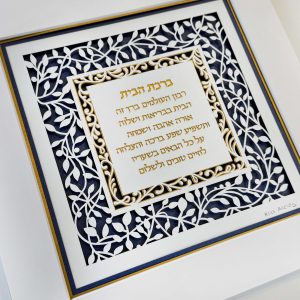 ברכת הבית
רבון העולמים ברך זה
הבית בבריאות ושלוה
אורה אהבה ושמחה
ותשפיע שפע ברכה והצלחה
על כל הבאים בשעריו
לחיים טובים ולשלום